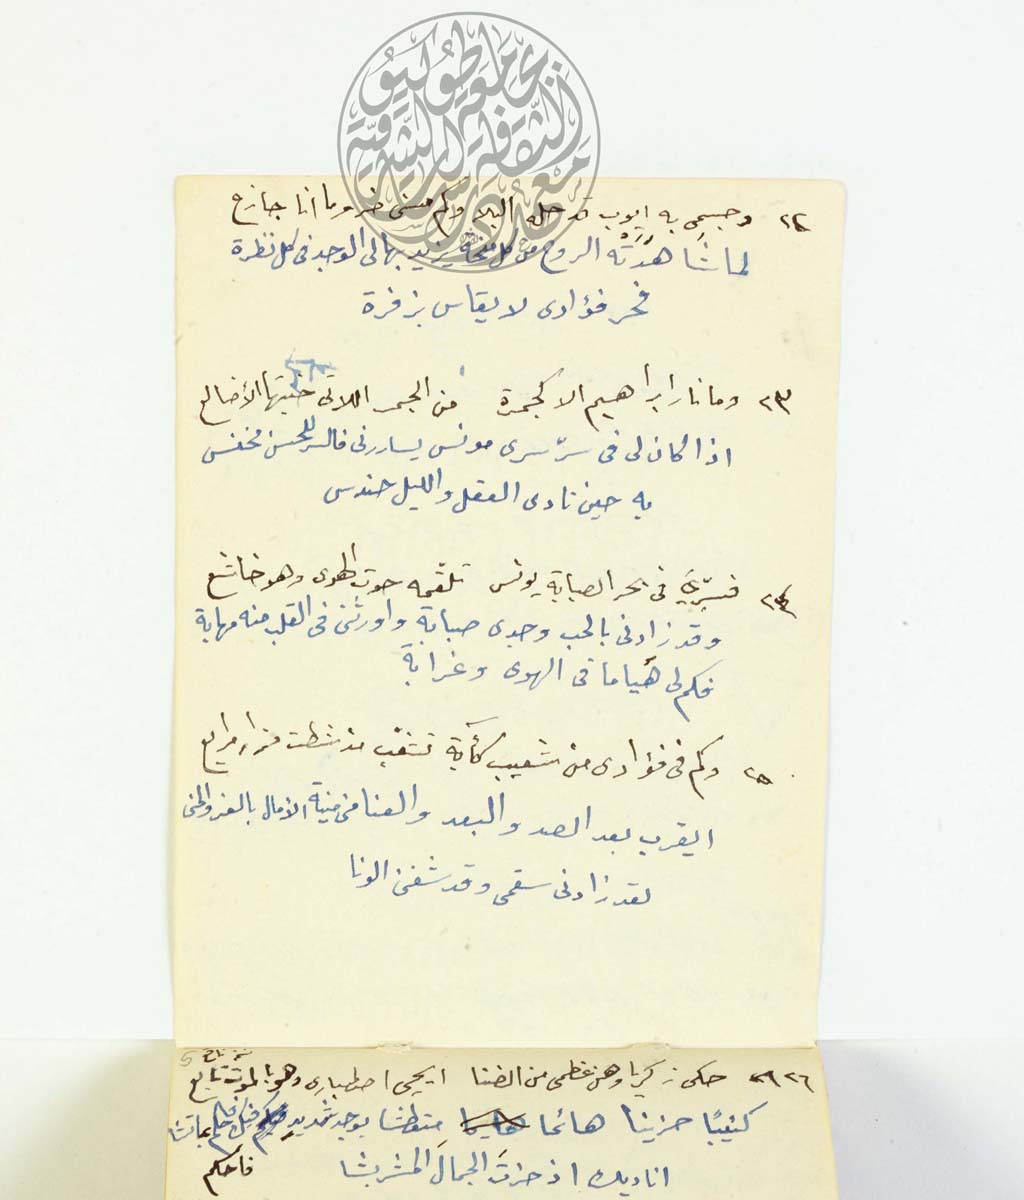 جامعة طوكيو
معهد دراسات الثقافة الشرقية
٢٢ وجسمي به ايوب قد حله البلا وكم مسني ضر وما انا جازع
لما شاهدته الروح من كل منحة يزيد بها لي الوجد في كل نظرة
فحر فؤادي لا يقاس بزفرة
٢٣ وما نار ابراهيم الا كجمرة من الجمر اللاتي خبتها الأضالع
اذا كان لي في سرّ سري مونس يساررني فالسر للحسن مخنس
به حين نادى العقل والليل حندس
٢٤ فسرّي في بحر الصبابة يونس تلقّمه حوت الهوى وهو خاشع
وقد زادني بالحب وجدي صبابة واورثني في القلب منه مهابة
فكم لي هُياما في الهوى وغرابة
٢٥ وكم في فؤادي من شعيب كأبة تشعّب مذ شطت مزار مرابع
ايقرب بعد الصد والبعد والعنا في منية الامال بالعز والهنى
لقد زادني سقمي وقد شفني الونا
5
٢٦ حكى زكريا وهن عظمي من الضنا ايحيى اصطباري وهو بالموت تابع
كئيبًا حزينا هائما متعطشا بوجد شديد
اناديك اذ حزت الجمال المشربشا
فاحكم